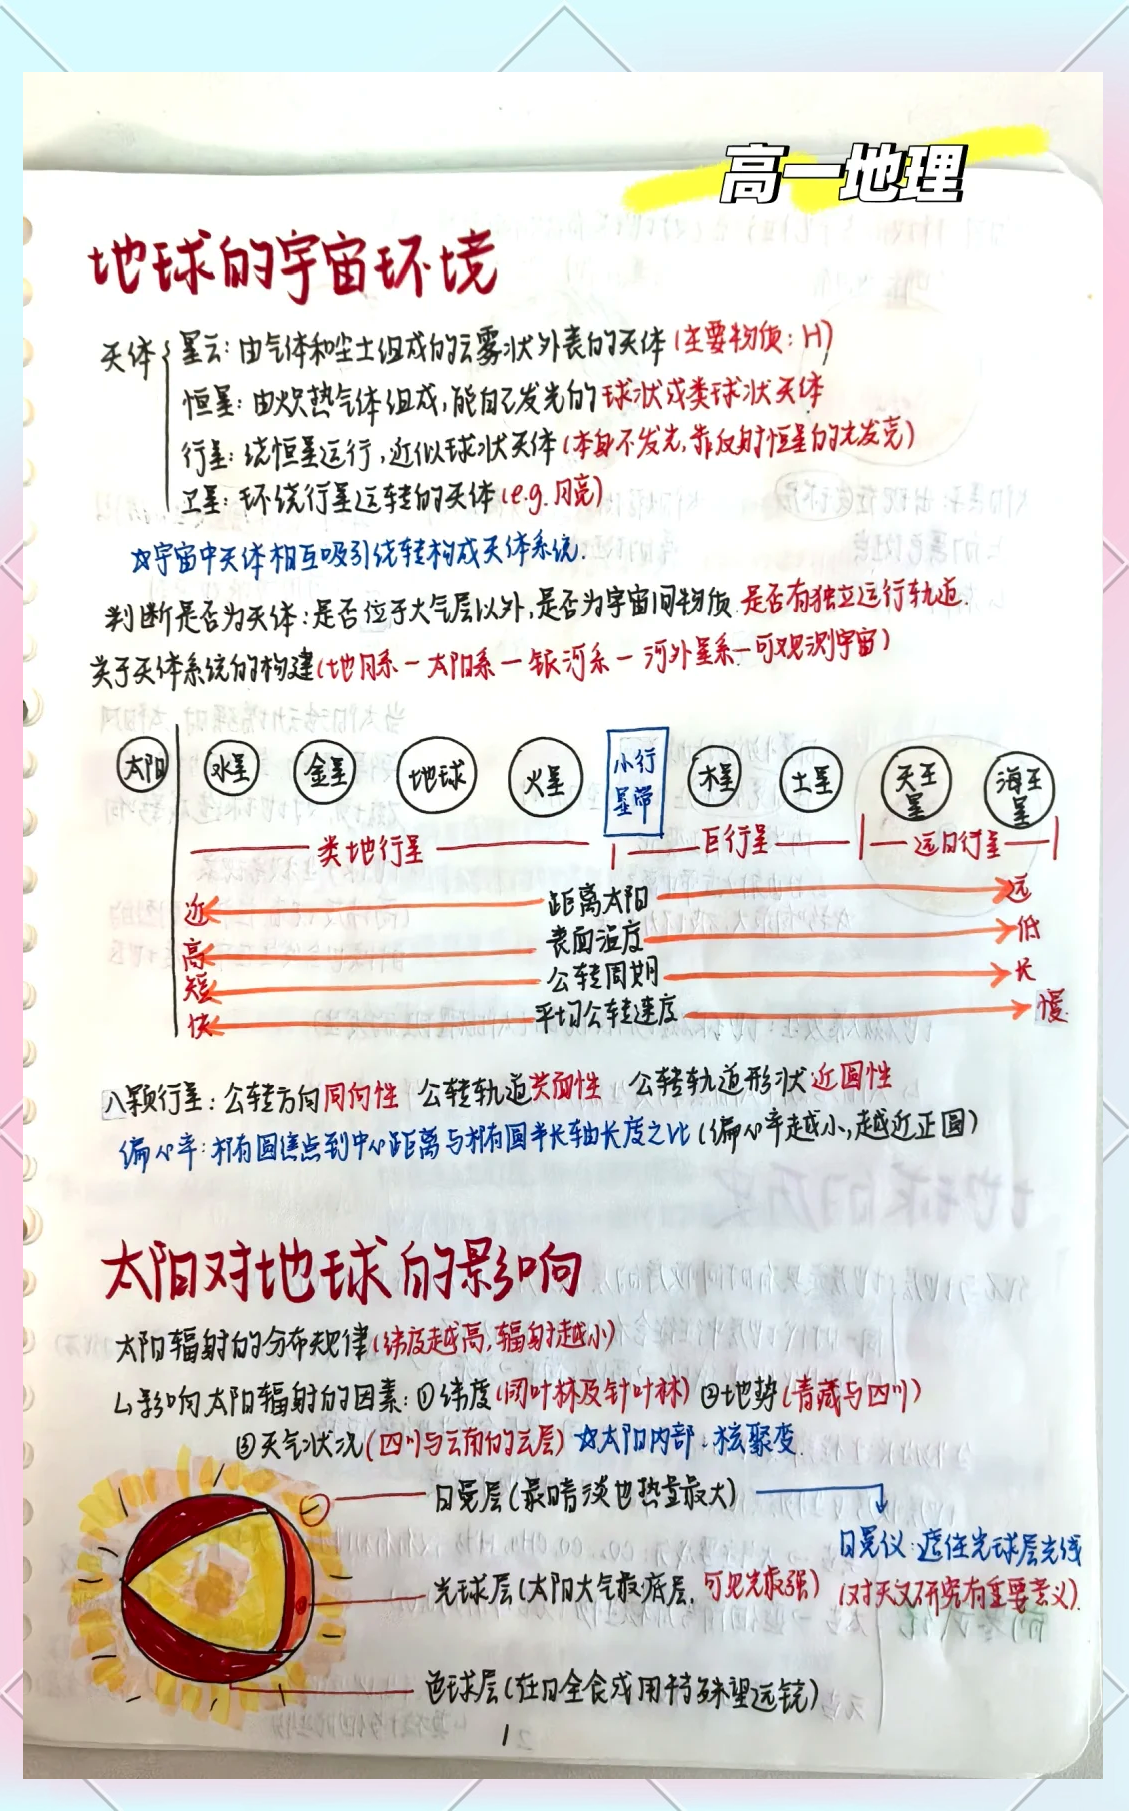 高一地理
地球的宇宙环境
天体
星云：由气体和尘土组成的云雾状外表的天体（主要物质：H）
恒星：由炽热气体组成，能自己发光的球状或类球状天体
行星：绕恒星运行，近似球状天体（本身不发光，靠反射恒星的光发亮）
卫星：环绕行星运转的天体（e.g.月亮）
☆宇宙中天体相互吸引绕转构成天体系统．
判断是否为天体：是否位于大气层以外，是否为宇宙间物质．是否有独立运行轨道．
关于天体系统的构建（地月系－太阳系－银河系－河外星系－可观测宇宙）
太阳 水星 金星 地球 火星 小行星带 木星 土星 天王星 海王星
类地行星 巨行星 远日行星
近 距离太阳 远
高 表面温度 低
短 公转周期 长
快 平均公转速度 慢
八颗行星：公转方向同向性 公转轨道共面性 公转轨道形状近圆性
偏心率：椭圆焦点到中心距离与椭圆半长轴长度之比（偏心率越小，越近正圆）
太阳对地球的影响
太阳辐射的分布规律（纬度越高，辐射越小）
↳影响太阳辐射的因素：①纬度（阔叶林及针叶林）②地势（青藏与四川）
③天气状况（四川与云南的云层）☆太阳内部：核聚变．
日冕层（最暗淡也热量最大）
日冕仪：遮住光球层光线
光球层（太阳大气最底层，可见光最强）
（对天文研究有重要意义）．
色球层（在日全食或用特殊望远镜）
1